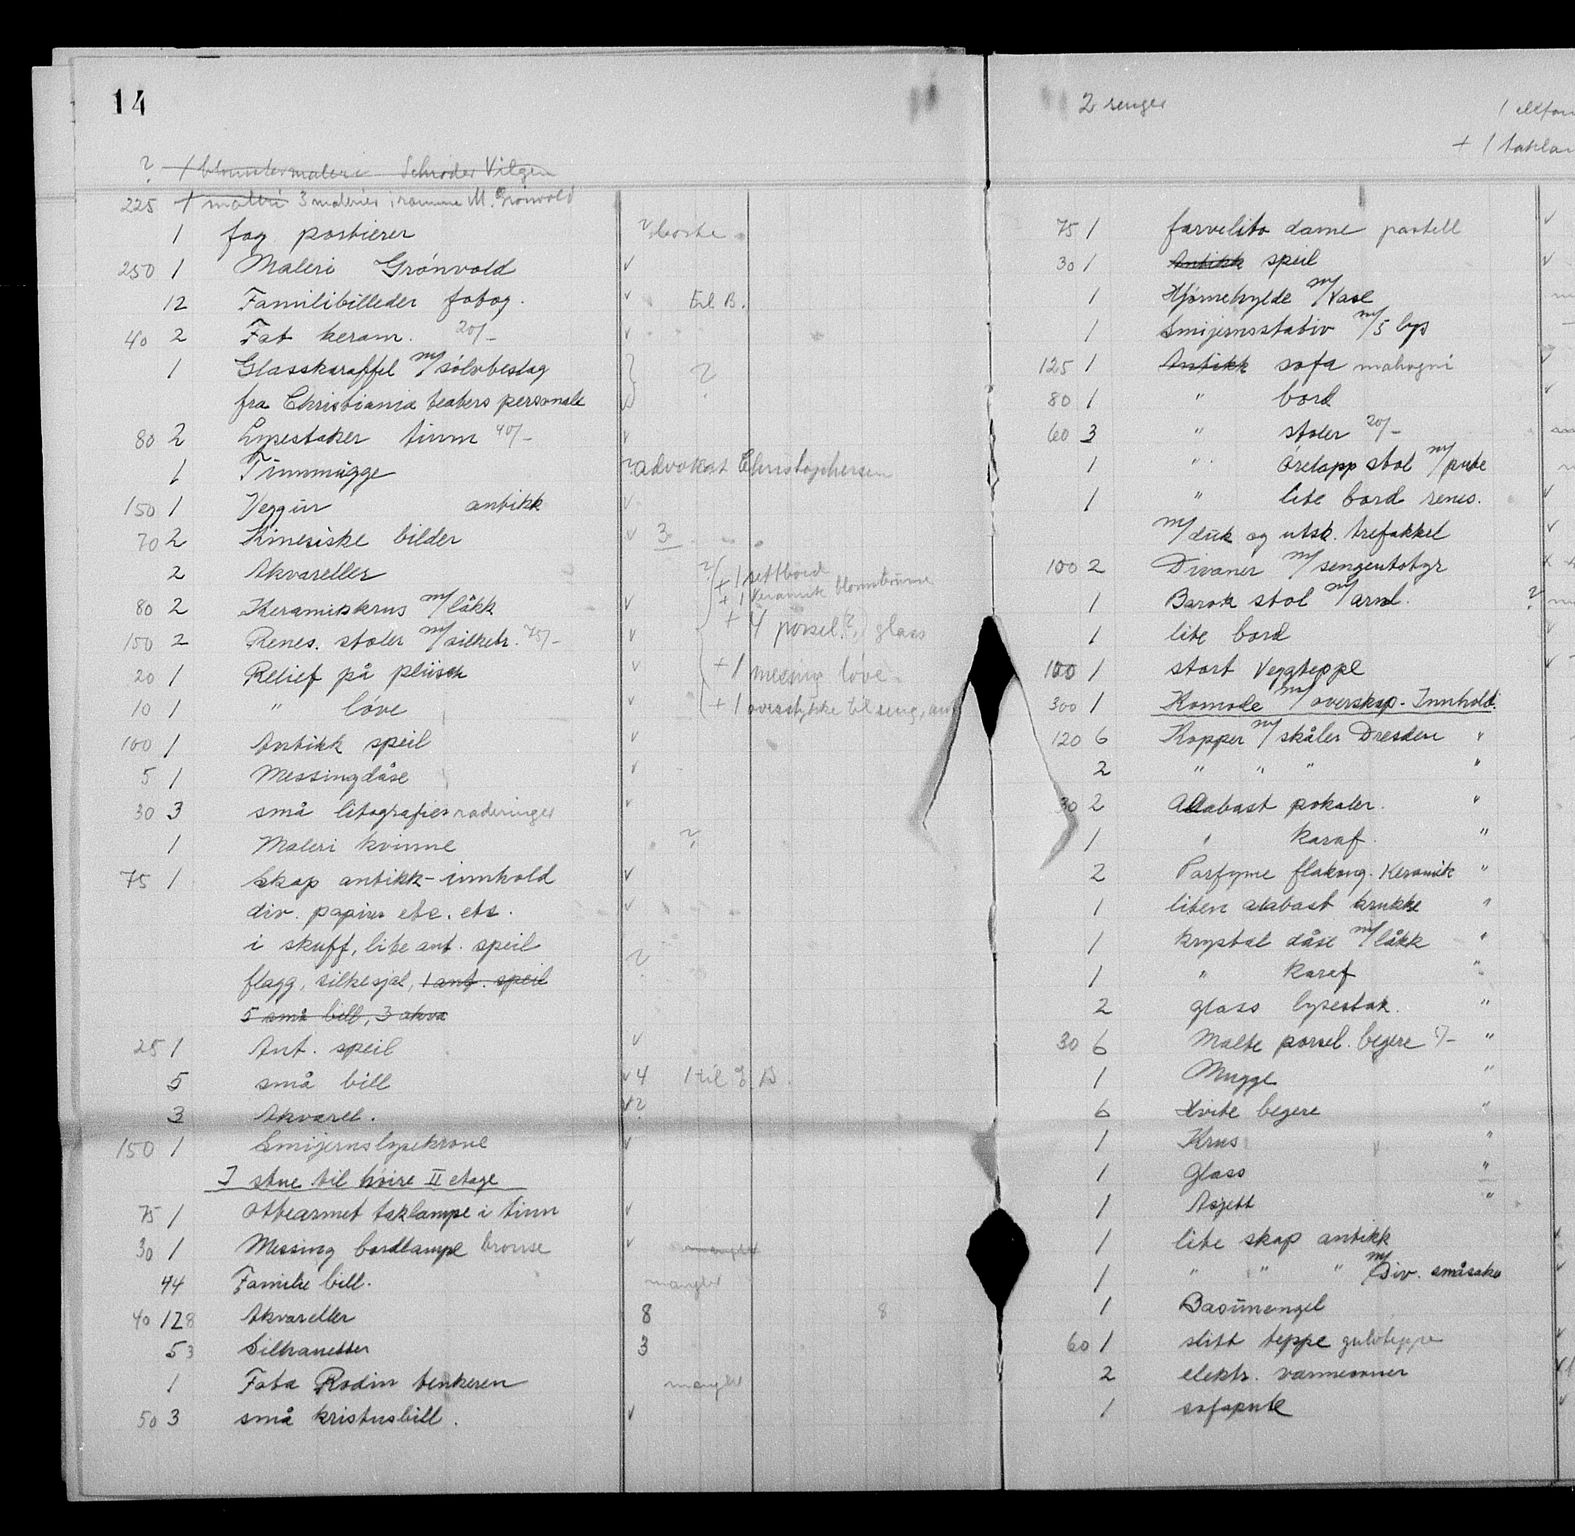 14
? 1 blomstermaleri Schrøder Vilgen
225 1 maleri 3 malerier i ramme M. Grønvold
1 fag portierer ? borte
250 1 Maleri Grønvold v
12 Familibilleder fotog. v til B.
40 2 Fat keram. 20/- v
1 Glasskaraffel m/sølvbeslag ?
fra Christiania teaters personale
80 2 Lysestaker tinn 40/- v
1 Tinnmugge ? advokat Christophersen
150 1 Veggur antikk v
70 2 Kinesiske bilder v 3
2 Akvareller ? + 1 settbord
+ 1 keramik blomsterurne
80 2 Keramikkrus m/låkk v
+ 4 porsel. (?) glass
150 2 Renes. stoler m/silketr. 75/- v
20 1 Relief på plüsch v + 1 messing løve
10 1 " løve v + 1 overstykke til seng, ant
100 1 Antikk speil v
5 1 Messingdåse v
30 3 små litografier raderinger v
1 Maleri kvinne ?
75 1 Skap antikk - innhold v
div. papirer etc. etc. v
i skuff, lite ant. speil
flagg, silkesjal, 1 ant. speil ?
5 små bill, 3 akva
25 1 Ant. speil v
5 små bill v 4 1 til B.
3 Akvarel. v ?
150 1 Smijernslysekrone v
I stue til høire II etage
75 1 Otbearmet taklampe i tinn v
30 1 Messing bordlampe bronse v mangler
44 Familie bill. mangler
40 12 8 Akvareller 8 8
5 3 Silhouetter 3
1 Foto Rodin tenkeren mangler
50 3 små kristusbill. v
2 senger
+ 1
75 1 farvelito dame pastell v
30 1 Antikk speil v
1 Hjørnehylde m/Vase
1 Smijernsstativ m/5 lys
125 1 Antikk sofa mahogni v
80 1 " bord v
60 3 " stoler 20/-
1 " Ørelapp stol m/pute
1 " lite bord renes. v
m/duk og utsk. trefakkel v
100 2 Divaner m/sengeutstyr
1 Barok stol m/arml. ?
1 lite bord v
100 1 stort Veggteppe v
300 1 Komode m/overskap - Innhold:
120 6 Kopper m/skåler Dresden "
2 " " " "
30 2 Alabast pokaler. "
1 " karaf. "
2 Parfyme flakong. Keramik "
1 liten alabast krukke "
1 krystal dåse m/låkk "
1 " karaf "
2 glass lysestak. "
30 6 Malte porsel. begere 5/- "
1 Mugge "
6 Hvite begere "
1 Krus "
1 Glass "
1 Asjett "
1 lite skap antikk v
1 " " " m/Div. småsaker v
1 Basunengel
60 1 slitt teppe gulvteppe v
2 elektr. varmeovner
1 sofapute v